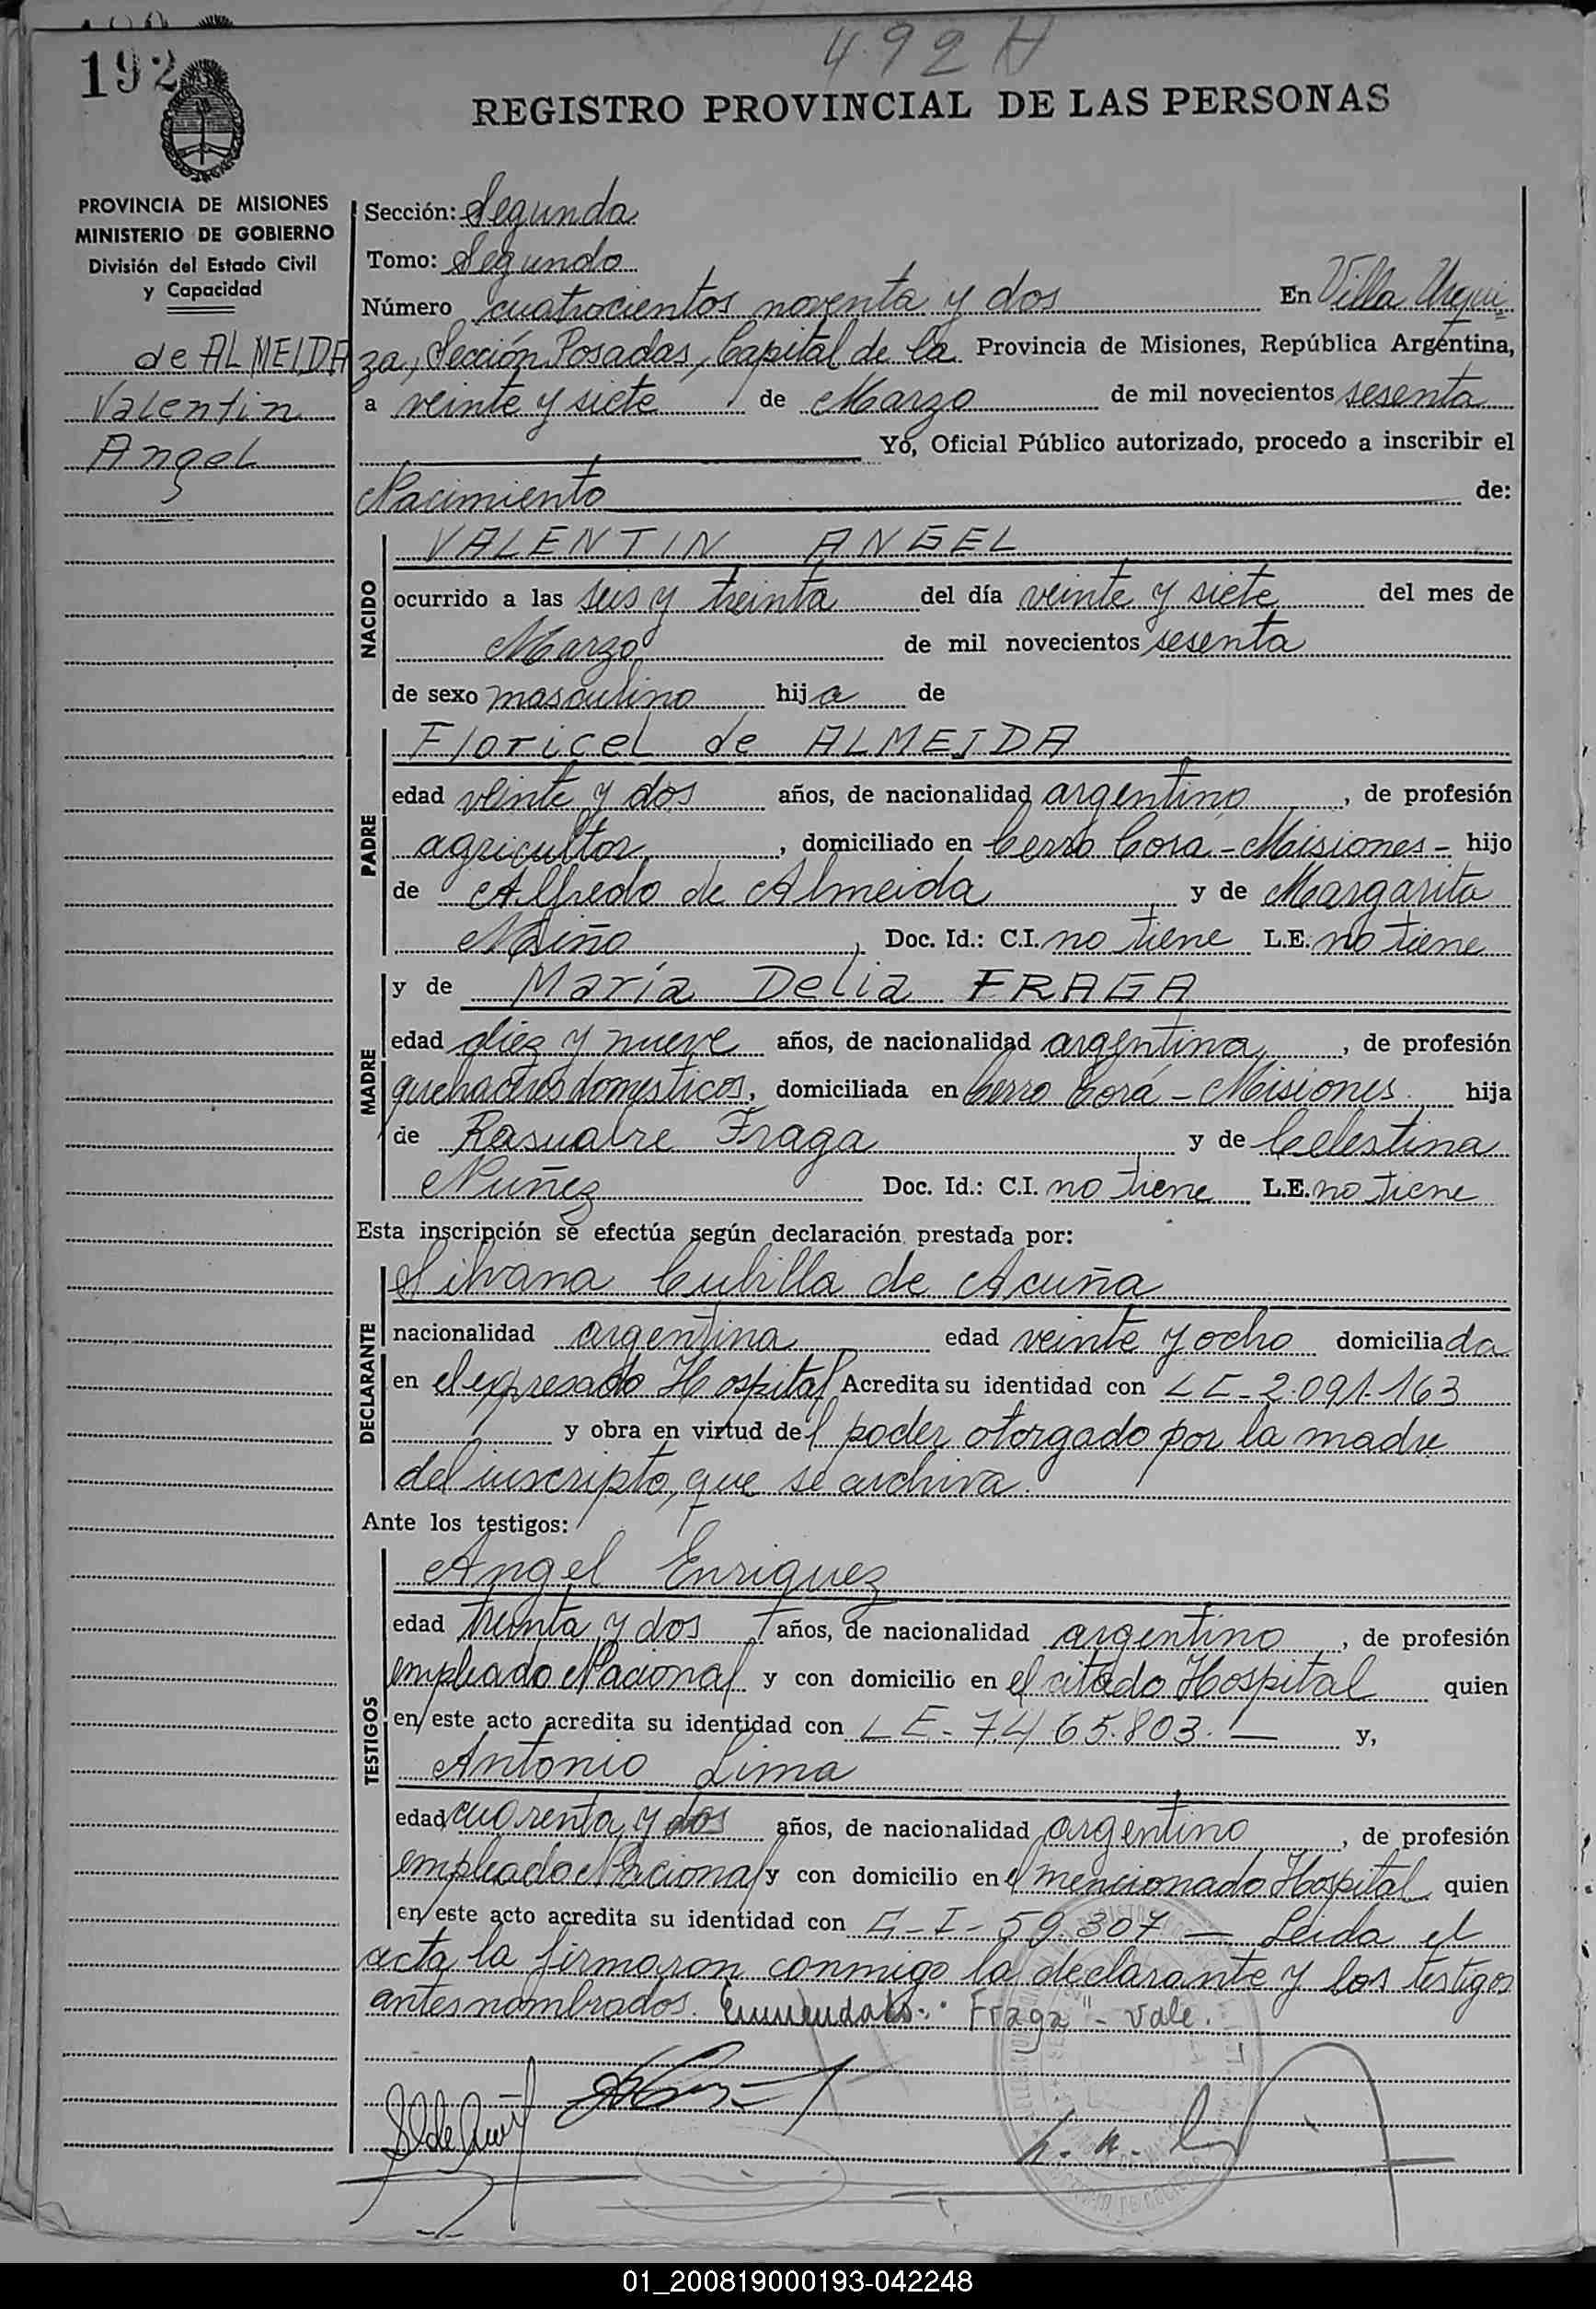 492 H
192
REGISTRO PROVINCIAL DE LAS PERSONAS
PROVINCIA DE MISIONES
MINISTERIO DE GOBIERNO
División del Estado Civil
y Capacidad
de ALMEIDA
Valentin
Angel
Sección: Segunda
Tomo: Segundo
Número cuatrocientos noventa y dos En Villa Urqui
za, Sección Posadas, Capital de la Provincia de Misiones, República Argentina,
a veinte y siete de Marzo de mil novecientos sesenta
Yo, Oficial Público autorizado, procedo a inscribir el
Nacimiento de:
NACIDO
VALENTIN ANGEL
ocurrido a las seis y treinta del día veinte y siete del mes de
Marzo de mil novecientos sesenta
de sexo masculino hija de
PADRE
Floricel de ALMEIDA
edad veinte y dos años, de nacionalidad argentino, de profesión
agricultor, domiciliado en Cerro Cora - Misiones - hijo
de Alfredo de Almeida y de Margarita
Miño, Doc. Id.: C.I. no tiene L.E: no tiene
MADRE
y de María Delia FRAGA
edad diez y nueve años, de nacionalidad argentina, de profesión
quehaceres domesticos, domiciliada en Cerro Corá - Misiones hija
de Fraga y de Celestina
Nuñez Doc. Id.: C.I. no tiene L.E. no tiene
Esta inscripción se efectúa según declaración prestada por:
DECLARANTE
Silvana Cubilla de Acuña
nacionalidad argentina edad veinte y ocho domiciliada
en el expresado Hospital Acredita su identidad con 2.091.163
y obra en virtud del poder otorgado por la madre
del inscripto, que se archiva.
Ante los testigos:
TESTIGOS
Angel Enriquez
edad treinta y dos años, de nacionalidad argentino, de profesión
empleado Nacional y con domicilio en el citado Hospital quien
en este acto acredita su identidad con LE - 7.465.803. — y,
Antonio Lima
edad cuarenta y dos años, de nacionalidad argentino, de profesión
empleado Nacional y con domicilio en el mencionado Hospital quien
en este acto acredita su identidad con 59.307 — Leida el
acta la firmaron conmigo la declarante y los testigos
antes nombrados. Enmendado: "Fraga" - Vale.
01_200819000193-042248